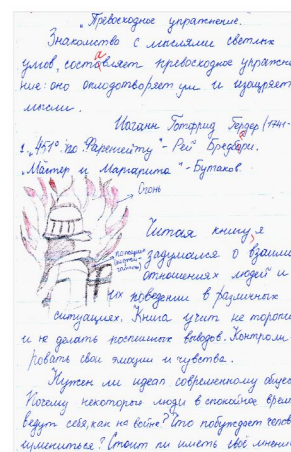 „Превосходное упражнение.
Знакомство с мыслями светлых
умов, составляет превосходное упражне
ние: оно оплодотворяет ум и изощряет
мысли.
Иоганн Готфрид Гердер (1741-
1. „451° по Фаренгейту" - Рей Бредбери.
„Мастер и Маргарита" - Булгаков.
Огонь
Читая книгу, я
задумался о взаим
отношениях людей и
их поведении в различных
ситуациях. Книга учит не торопи
и не делать поспешных выводов. Контроли
ровать свои эмоции и чувства.
Нужен ли идеал современному общес
Почему некоторые люди в спокойное врем
ведут себя, как на войне? Что побуждает челов
измениться? Стоит ли иметь своё мнени